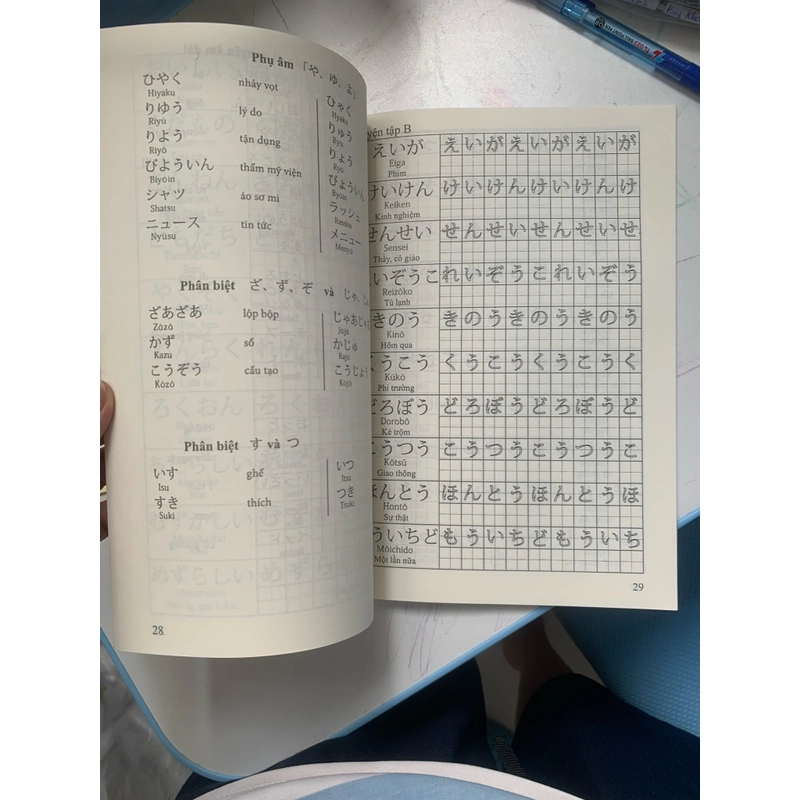 Phụ âm 「や、ゆ、よ」
ひやく nhảy vọt ひゃく
Hiyaku Hyaku
りゆう lý do りゅう
Riyū Ryū
りよう tận dụng りょう
Riyō Ryō
びよういん thẩm mỹ viện びょういん
Biyōin Byōin
シャツ áo sơ mi ラッシュ
Shatsu Rasshu
ニュース tin tức メニュー
Nyūsu Menyū
Phân biệt ざ、ず、ぞ và じゃ、
ざあざあ lộp bộp じゃあじゃ
Zāzā Jājā
かず số かじゅ
Kazu Kaju
こうぞう cấu tạo こうじょう
Kōzō Kōjō
Phân biệt す và つ
いす ghế いつ
Isu Itsu
すき thích つき
Suki Tsuki
28
tập B
えいが えいがえいがえいが
Eiga
Phim
けいけん けいけんけいけんけ
Keiken
Kinh nghiệm
せんせい せんせいせんせいせ
Sensei
Thầy, cô giáo
いぞうこ れいぞうこれいぞう
Reizōko
Tủ lạnh
きのう きのうきのうきのう
Kinō
Hôm qua
うこう くうこうくうこうく
Kūkō
Phi trường
どろぼう どろぼうどろぼうど
Dorobō
Kẻ trộm
こうつう こうつうこうつうこ
Kōtsū
Giao thông
ほんとう ほんとうほんとうほ
Hontō
Sự thật
ういちど もういちどもういち
Mōichido
Một lần nữa
29